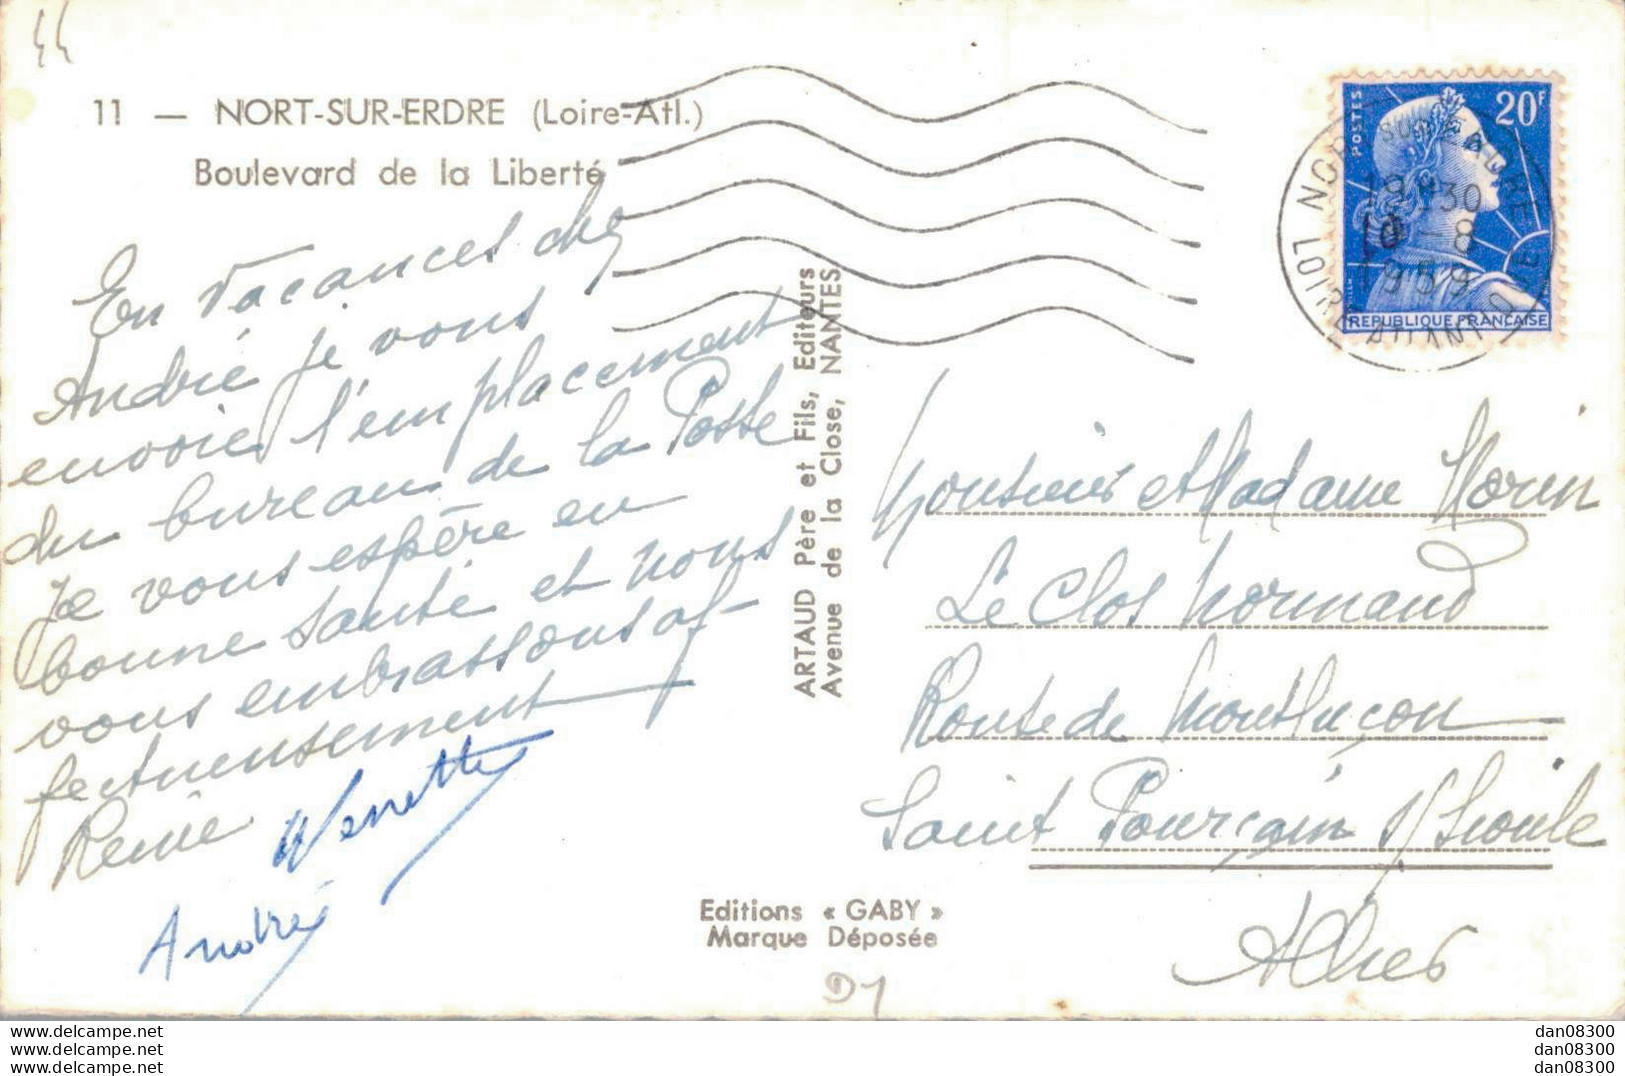 44
11 — NORT-SUR-ERDRE (Loire-Atl.)
Boulevard de la Liberté
En Vacances chez
André je vous
envoie l'emplacement
du bureau de la Poste
Je vous espère en
bonne santé et nous
vous embrassons af-
fectueusement
Renée
André
ARTAUD Père et Fils, Editeurs
Avenue de la Close, NANTES
Editions « GABY »
Marque Déposée
D1
POSTES
20F
REPUBLIQUE FRANÇAISE
NORT SUR ERDRE
LOIRE ATLANTIQUE
1959
Monsieur et Madame Morin
Le Clos Normand
Route de Montluçon
Saint Pourçain s/ Sioule
Allier
www.delcampe.net
www.delcampe.net
www.delcampe.net
dan08300
dan08300
dan08300